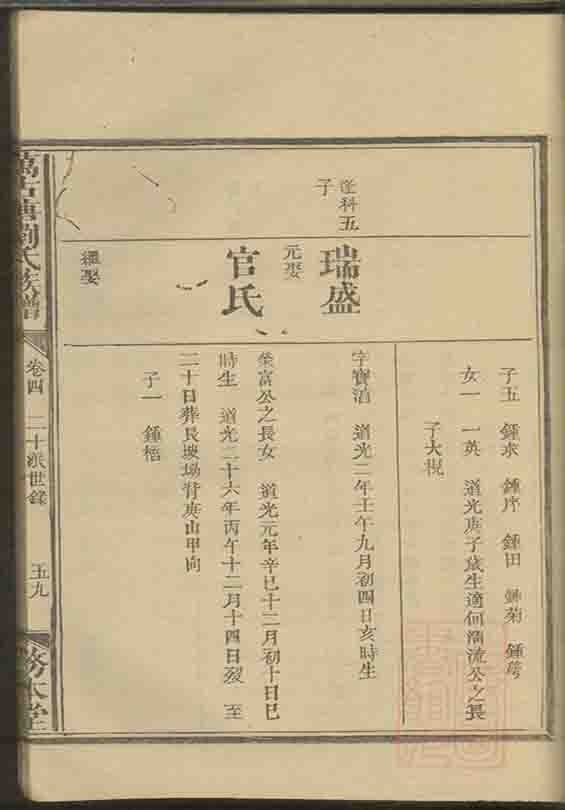 子五 鍾求 鍾序 鍾田 鍾菊 鍾蕚
女一 一英 道光庚子歲生適何清流公之長
子大梘
逢科五
子
瑞盛
字寶酒 道光二年壬午九月初四日亥時生
元娶
官氏
榮富公之長女 道光元年辛巳十二月初十日巳
時生 道光二十六年丙午十二月十四日歿 至
二十日葬長坡塲背庚山甲向
子一 鍾梧
繼娶
萬古塘劉氏族譜
卷四 二十派世錄 五九
務本堂